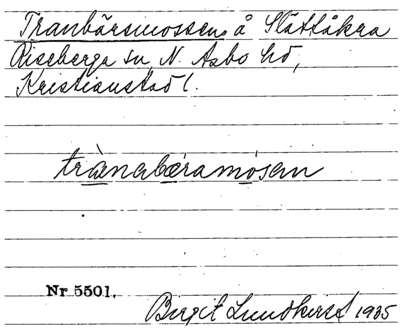 Tranbärsmossen, å Slättåkra
Riseberga sn, N. Åsbo hd,
Kristianstad l.
trànabæramosen
Nr 5501.
Birgit Lundkvist 1935